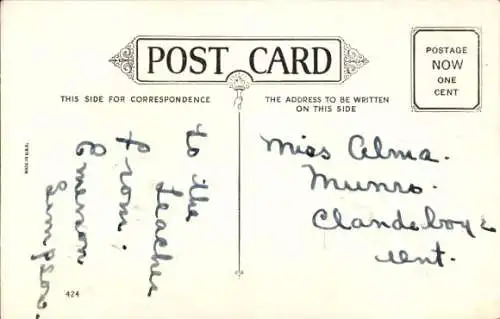 POST CARD
THIS SIDE FOR CORRESPONDENCE
THE ADDRESS TO BE WRITTEN
ON THIS SIDE
POSTAGE
NOW
ONE
CENT
MADE IN U.S.A.
to the
teacher
from.
Emerson
Simpson.
Miss Alma.
Munro.
Clandeboye
ont.
424